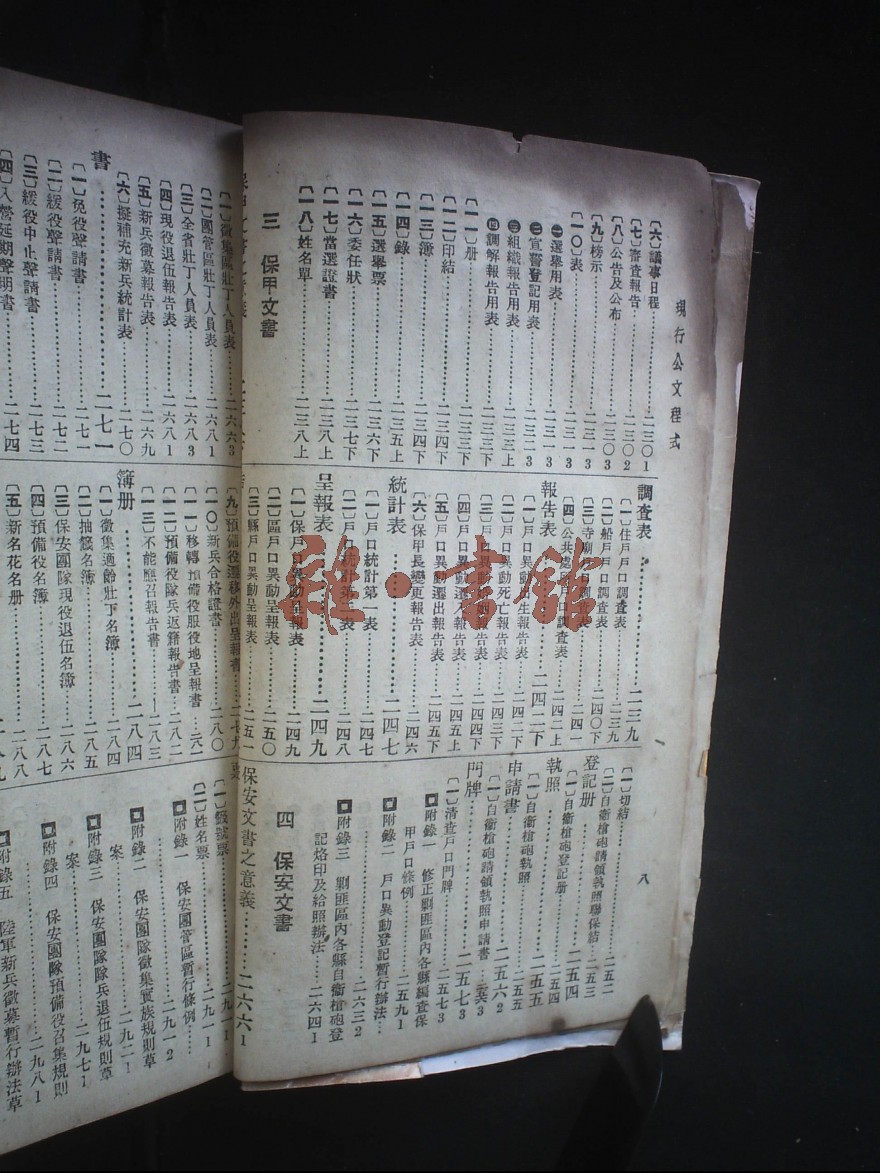 現行公文程式
八
〔六〕議事日程……二三〇1
〔七〕審查報告……二三〇2
〔八〕公告及公布……二三〇3
〔九〕榜示……二三一3
〔一〇〕表……二三一3
㊀選舉用表……二三一3
㊁宣誓登記用表……二三二3
㊂組織報告用表……二三三上
㊃調解報告用表……二三三下
〔一一〕册……二三三下
〔一二〕印結……二三四下
〔一三〕簿……二三四下
〔一四〕錄……二三五上
〔一五〕選舉票……二三六下
〔一六〕委任狀……二三七下
〔一七〕當選證書……二三八上
〔一八〕姓名單……二三八上
三 保甲文書
調查表……二三九
〔一〕住戶戶口調查表……二三九
〔二〕船戶戶口調查表……二四〇下
〔三〕寺廟戶口調查表……二四一
〔四〕公共處所戶口調查表……二四二上
報告表……二四二下
〔一〕戶口異動出生報告表……二四二下
〔二〕戶口異動死亡報告表……二四三下
〔三〕戶口異動報告表……二四四下
〔四〕戶口異動遷入報告表……二四五上
〔五〕戶口異動遷出報告表……二四五下
〔六〕保甲長變更報告表……二四六
統計表……二四七
〔一〕戶口統計第一表……二四七
〔二〕戶口統計第二表……二四八
呈報表……二四九
〔一〕保戶口異動呈報表……二四九
〔二〕區戶口異動呈報表……二五〇
〔三〕縣戶口異動呈報表……二五一
〔一〕切結……二五二
〔二〕自衞槍砲請領執照聯保結……二五三
登記册……二五四
〔一〕自衞槍砲登記册……二五四
執照……二五五
〔一〕自衞槍砲執照……二五五
申請書……二五六2
〔一〕自衞槍砲請領執照申請書……二五六3
門牌……二五七3
〔一〕清查戶口門牌……二五七3
附錄一 修正剿匪區內各縣編查保甲戶口條例……二五九1
附錄二 戶口異動登記暫行辦法……二六三2
附錄三 剿匪區內各縣自衞槍砲登記烙印及給照辦法……二六四1
四 保安文書
保安文書之意義……二六六1
〔一〕徵集區壯丁人員表……二六六3
〔二〕團管區壯丁人員表……二六八1
〔三〕全省壯丁人員表……二六八3
〔四〕現役退伍報告表……二六八1
〔五〕新兵徵募報告表……二六九
〔六〕擬補充新兵統計表……二七〇
書……二七一
〔一〕免役聲請書……二七一
〔二〕緩役聲請書……二七二
〔三〕緩役中止聲請書……二七三
〔四〕入營延期聲明書……二七四
〔九〕預備役遷移外出呈報書……二七九
〔一〇〕新兵合格證書……二八〇
〔一一〕移轉預備役服役地呈報書……二八一
〔一二〕預備役隊兵返籍報告書……二八二
〔一三〕不能應召報告書……二八三
簿册……二八四
〔一〕徵集適齡壯丁名簿……二八四
〔二〕抽籤名簿……二八五
〔三〕保安團隊現役退伍名簿……二八六
〔四〕預備役名簿
〔五〕新名花名册……二八八
票
〔一〕籤號票……二九一1
〔二〕姓名票……二九一1
附錄一 保安團管區暫行條例……二九一2
附錄二 保安團隊徵集實族規則草案……二九二1
附錄三 保安團隊隊兵退伍規則草案……二九七1
附錄四 保安團隊預備役召集規則……二九八1
附錄五 陸軍新兵徵募暫行辦法草
雜·書館